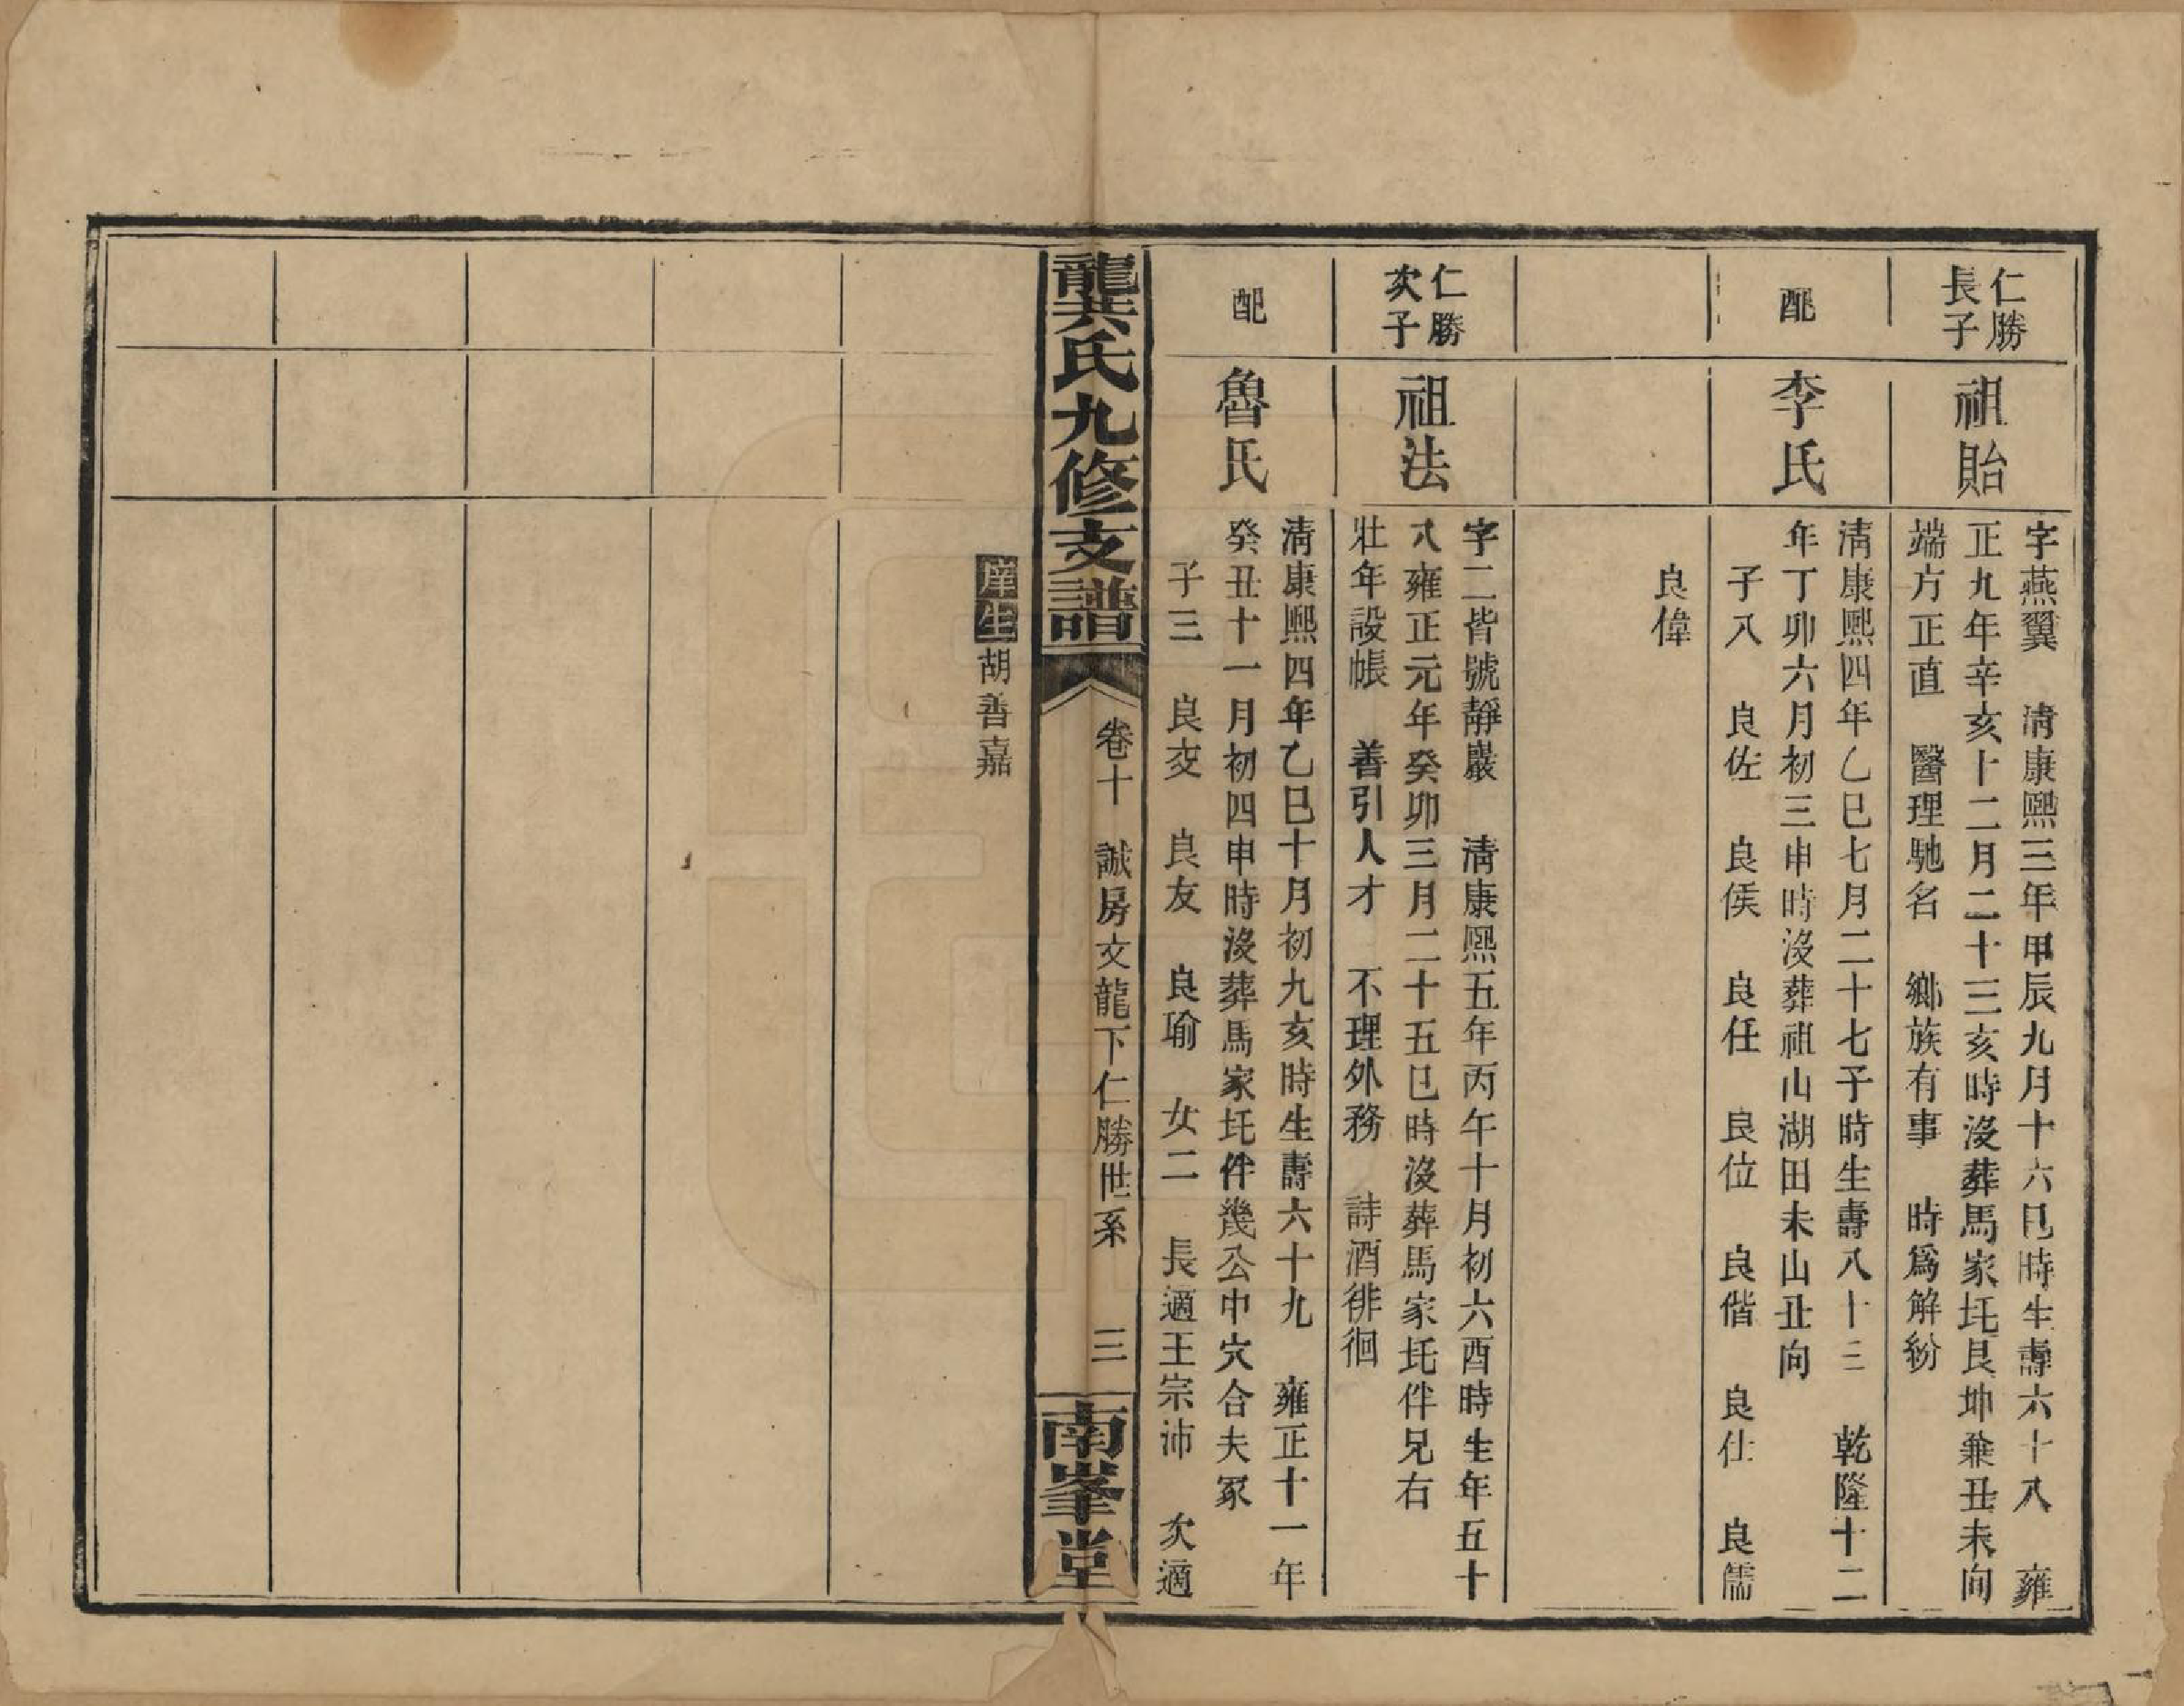 仁勝
長子
祖貽
字燕翼　清康熙三年甲辰九月十六巳時生壽六十八　雍
正九年辛亥十二月二十三亥時沒葬馬家圫艮坤兼丑未向
端方正直　醫理馳名　鄉族有事　時爲解紛
配
李氏
清康熙四年乙巳七月二十七子時生壽八十三　乾隆十二
年丁卯六月初三申時沒葬祖山湖田未山丑向
子八　良佐　良俟　良任　良位　良偕　良仕　良儒
良偉
仁勝
次子
祖法
字二皆號靜巖　清康熙五年丙午十月初六酉時生年五十
八雍正元年癸卯三月二十五巳時沒葬馬家圫伴兄右
壯年設帳　善引人才　不理外務　詩酒徘徊
配
魯氏
清康熙四年乙巳十月初九亥時生壽六十九　雍正十一年
癸丑十一月初四申時沒葬馬家圫件幾公中穴合夫冢
子三　良交　良友　良瑜　女二　長適王宗沛　次適
龍共氏九修支譜
卷十　誠房文龍下仁勝世系　三
南峯堂
庠生胡善嘉